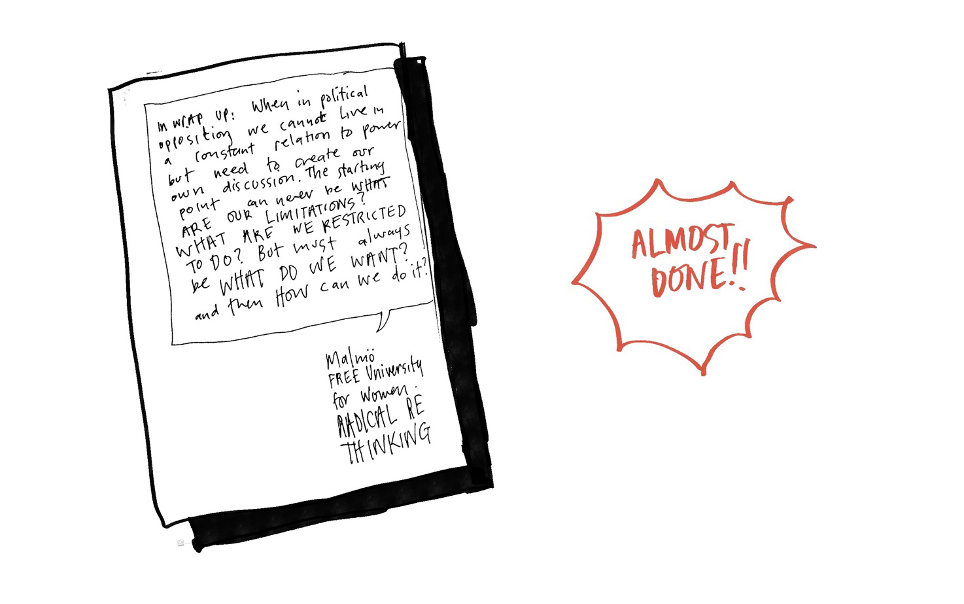 In WRAP UP: When in political
opposition we cannot live in
a constant relation to power
but need to create our
own discussion. The starting
point can never be WHAT
ARE OUR LIMITATIONS?
WHAT ARE WE RESTRICTED
TO DO? But must always
be WHAT DO WE WANT?
and then HOW can we do it?
Malmö
FREE University
for Women:
RADICAL RE
THINKING
ALMOST
DONE!!